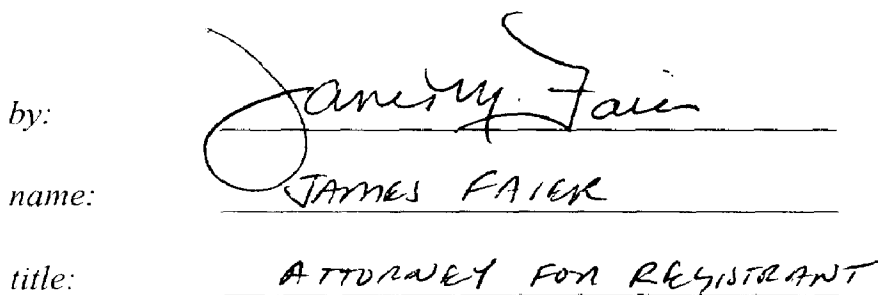 by: James M. Faier
name: JAMES FAIER
title: ATTORNEY FOR REGISTRANT